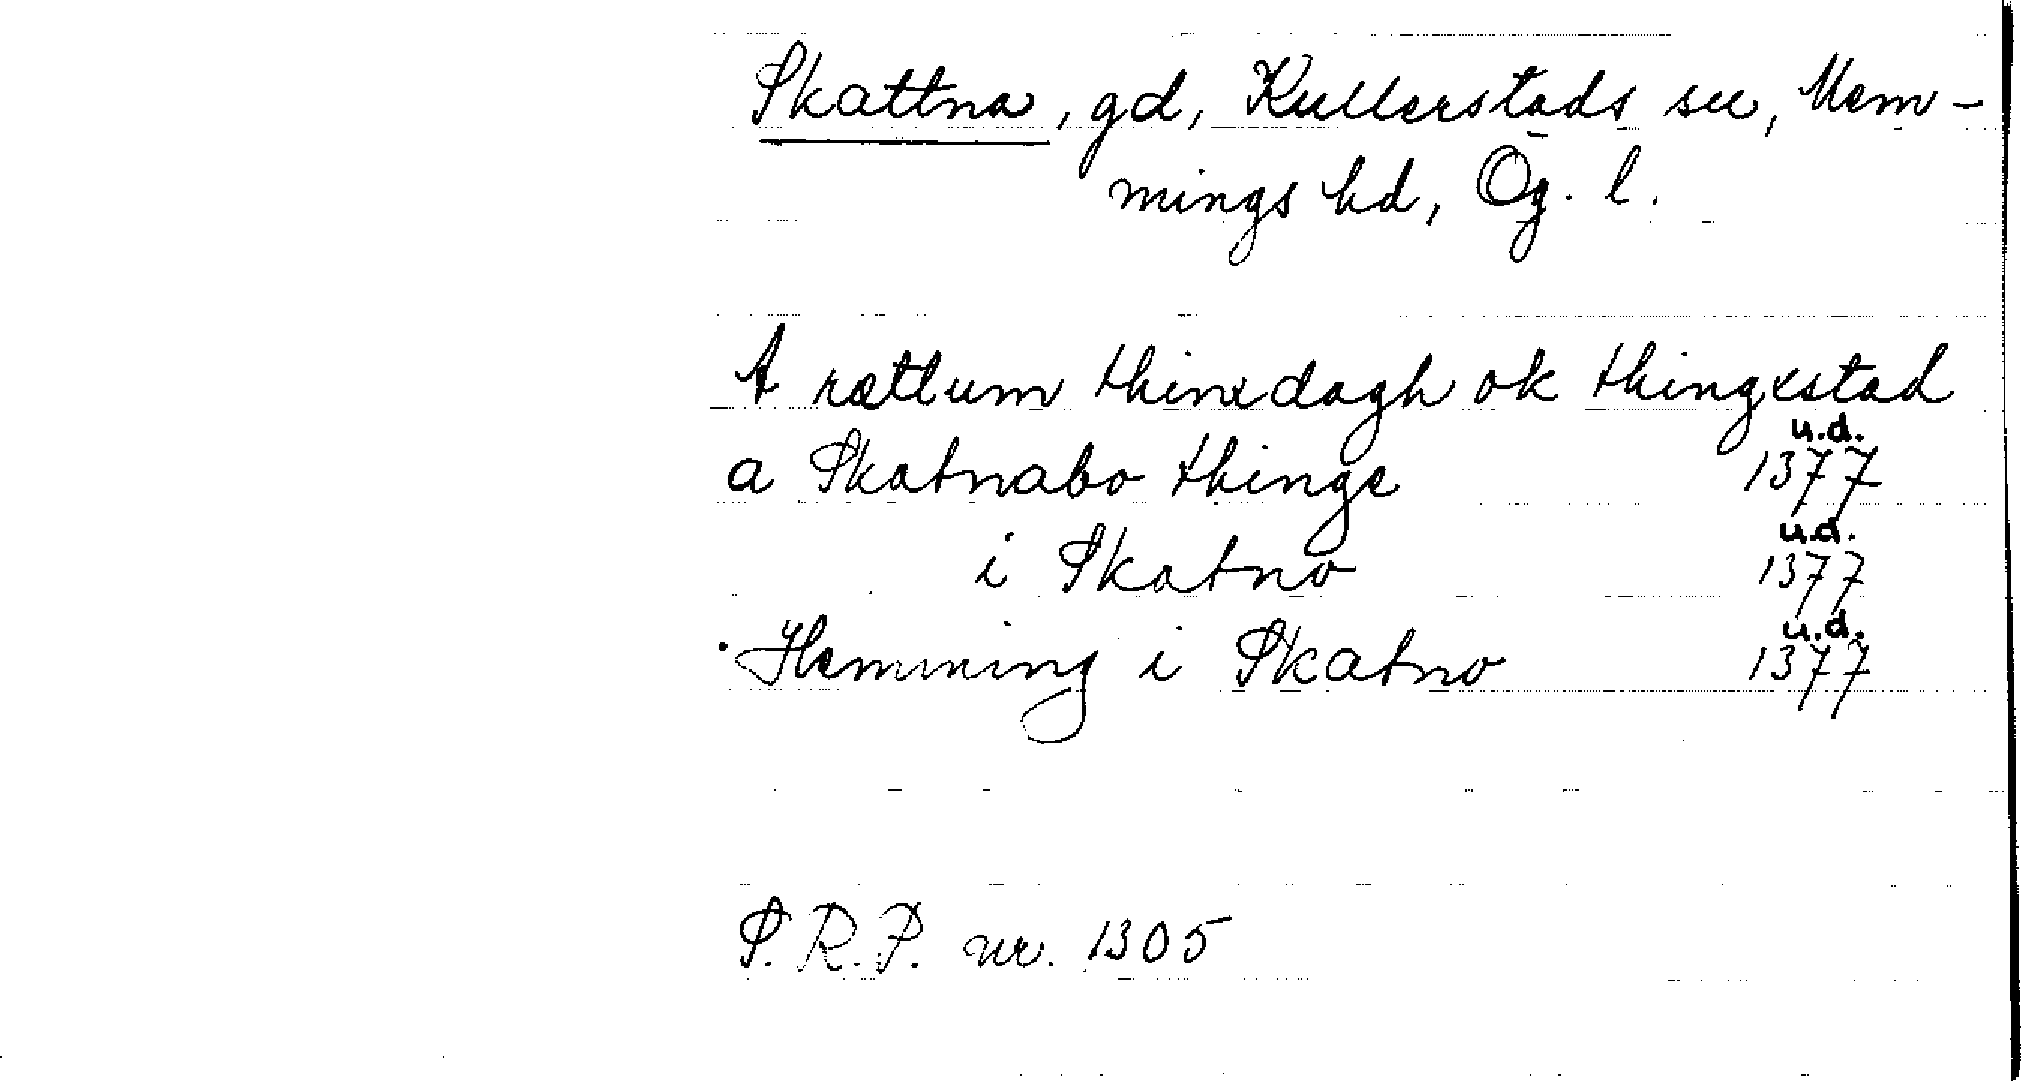 Skattna, gd, Kullerstads sn, Mem-
mings hd, Ög. l.
A rættum thinxdagh ok thingxstad
u.d.
a Skatnabo thinge 1377
u.d.
i Skatno 1377
u.d.
Hemming i Skatno 1377
S.R.P. nr. 1305